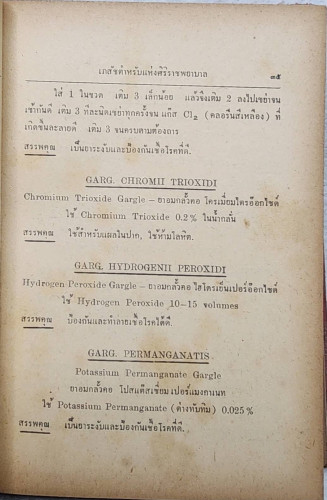 เภสัชตำหรับแห่งศิริราชพยาบาล ๓๕
ใส่ 1 ในขวด เติม 3 เล็กน้อย แล้วจึงเติม 2 ลงไปเขย่าจน
เข้ากันดี เติม 3 ทีละนิดเขย่าทุกครั้งจน แก๊ส Cl₂ (คลอรีนสีเหลือง) ที่
เกิดขึ้นละลายดี เติม 3 จนครบตามต้องการ
สรรพคุณ เป็นยาระงับและป้องกันเชื้อโรคที่ดี.
GARG. CHROMII TRIOXIDI
Chromium Trioxide Gargle – ยาอมกลั้วคอ โครเมี่ยมไตรอ๊อกไซด์
ใช้ Chromium Trioxide 0.2 % ในน้ำกลั่น
สรรพคุณ ใช้สำหรับแผลในปาก, ใช้ห้ามโลหิต.
GARG. HYDROGENII PEROXIDI
Hydrogen Peroxide Gargle – ยาอมกลั้วคอ ไฮโดรเย็นเปอร์อ๊อกไซด์
ใช้ Hydrogen Peroxide 10–15 volumes
สรรพคุณ ป้องกันและทำลายเชื้อโรคได้ดี.
GARG. PERMANGANATIS
Potassium Permanganate Gargle
ยาอมกลั้วคอ โปสแต๊สเซี่ยมเปอร์แมงกาเนท
ใช้ Potassium Permanganate (ด่างทับทิม) 0.025 %
สรรพคุณ เป็นยาระงับและป้องกันเชื้อโรคที่ดี.